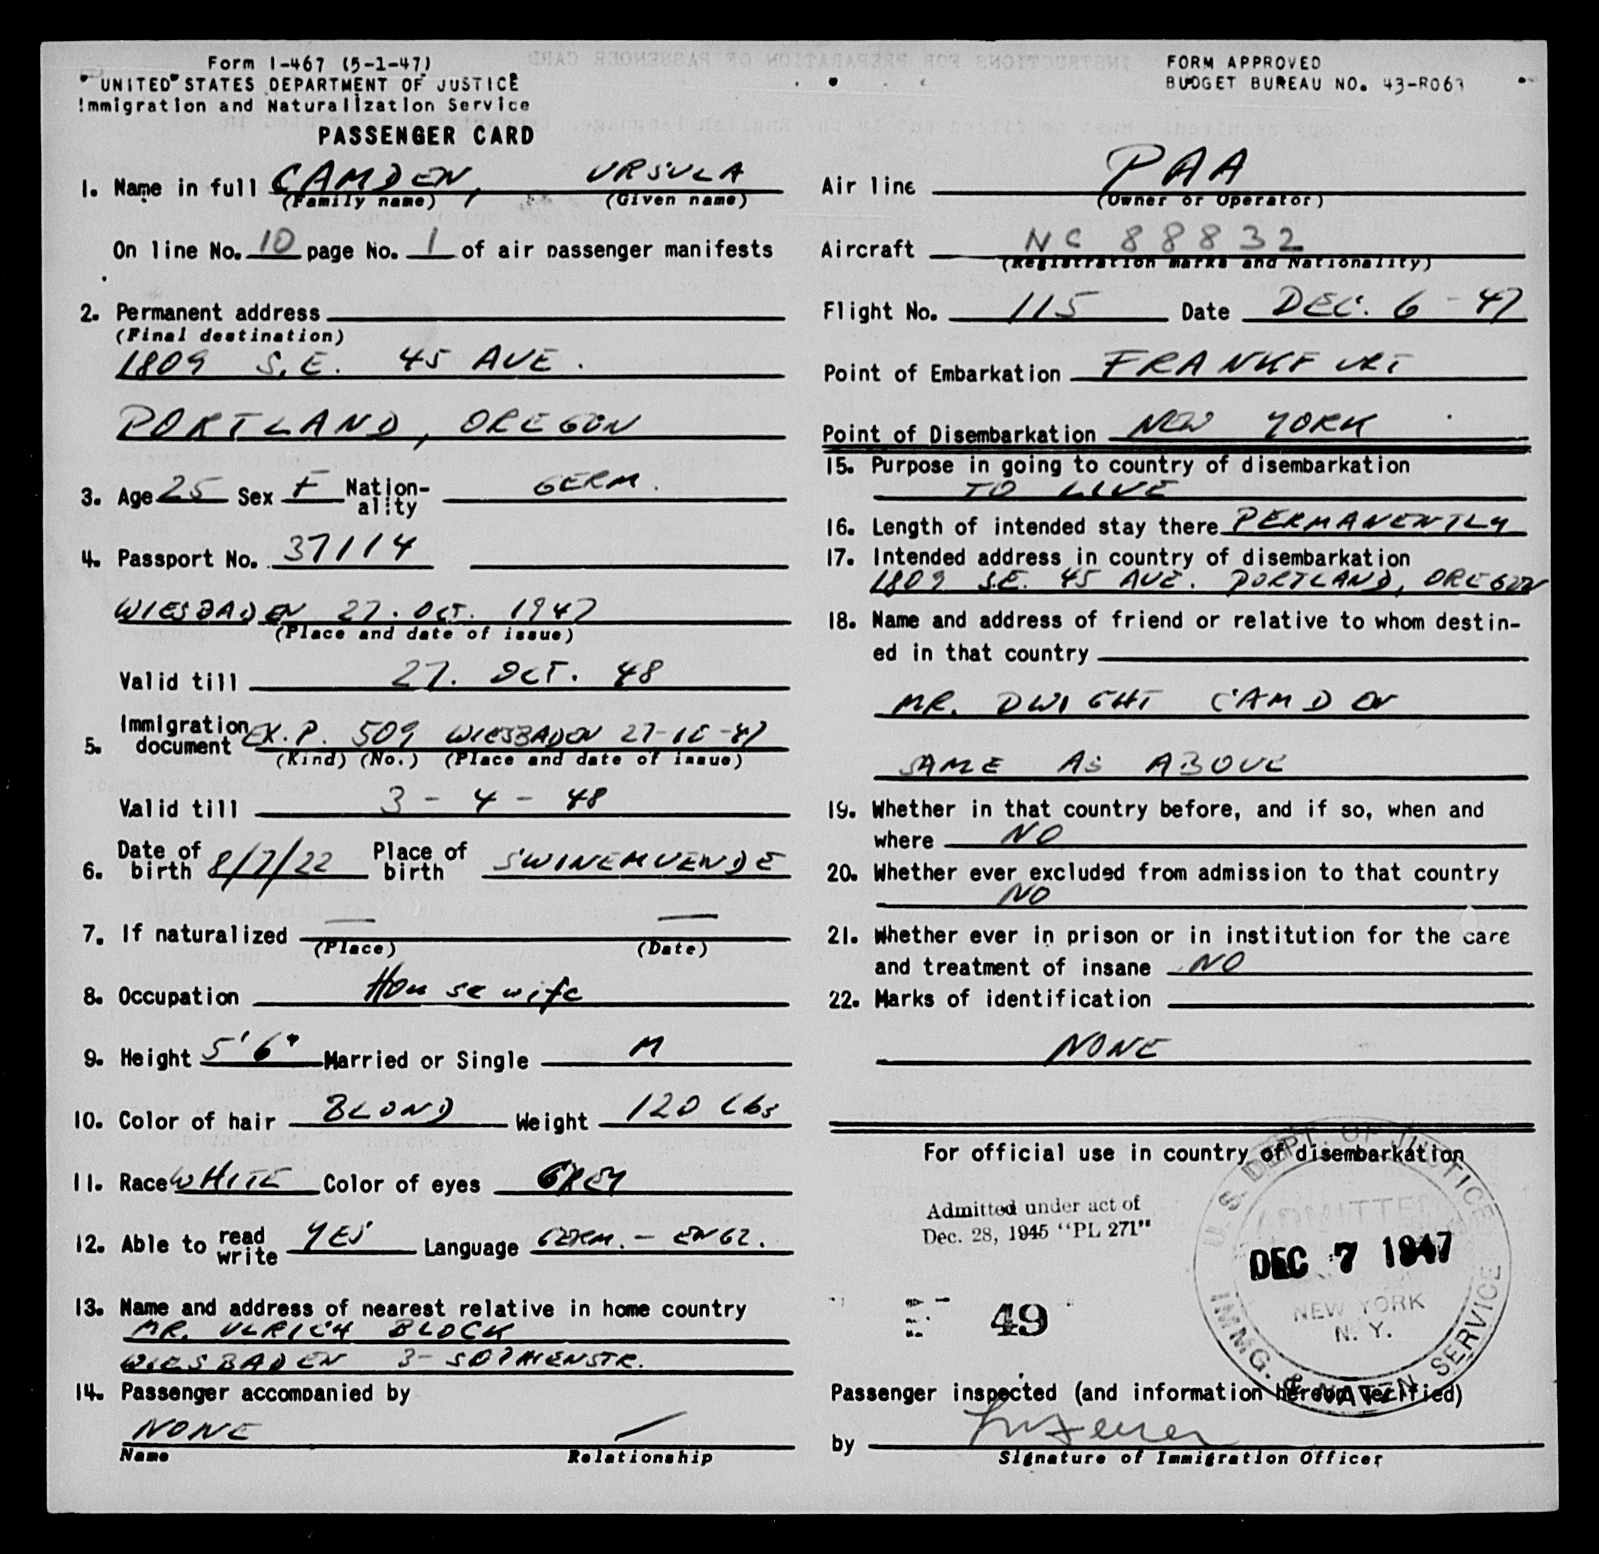 Form I-467 (5-1-47)
UNITED STATES DEPARTMENT OF JUSTICE
Immigration and Naturalization Service
PASSENGER CARD
FORM APPROVED
BUDGET BUREAU NO. 43-R063
1. Name in full CAMDEN, URSULA
(Family name) (Given name)
On line No. 10 page No. 1 of air passenger manifests
2. Permanent address
(Final destination)
1809 S.E. 45 AVE.
PORTLAND, OREGON
3. Age 25 Sex F Nation-ality GERM.
4. Passport No. 37114
WIESBADEN 27. OCT. 1947
(Place and date of issue)
Valid till 27. OCT. 48
5. Immigration document EX. P. 509 WIESBADEN 27-10-47
(Kind) (No.) (Place and date of issue)
Valid till 3-4-48
6. Date of birth 8/7/22 Place of birth SWINEMUENDE
7. If naturalized — —
(Place) (Date)
8. Occupation Housewife
9. Height 5'6" Married or Single M
10. Color of hair BLOND Weight 120 Lbs
11. Race WHITE Color of eyes GREY
12. Able to read write YES Language GERM. - ENGL.
13. Name and address of nearest relative in home country
MR. ULRICH BLOCK
WIESBADEN 3- SOPHIENSTR.
14. Passenger accompanied by
NONE
Name Relationship
Air line PAA
(Owner or Operator)
Aircraft NC 88832
(Registration marks and Nationality)
Flight No. 115 Date DEC. 6 - 47
Point of Embarkation FRANKFURT
Point of Disembarkation NEW YORK
15. Purpose in going to country of disembarkation
TO LIVE
16. Length of intended stay there PERMANENTLY
17. Intended address in country of disembarkation
1809 S.E. 45 AVE. PORTLAND, OREGON
18. Name and address of friend or relative to whom destin-
ed in that country
MR. DWIGHT CAMDEN
SAME AS ABOVE
19. Whether in that country before, and if so, when and
where NO
20. Whether ever excluded from admission to that country
NO
21. Whether ever in prison or in institution for the care
and treatment of insane NO
22. Marks of identification
NONE
For official use in country of disembarkation
Admitted under act of
Dec. 28, 1945 "PL 271"
49
U. S. DEPT. OF JUSTICE
ADMITTED
DEC 7 1947
NEW YORK
N. Y.
IMMG. & NATZN SERVICE
Passenger inspected (and information hereon verified)
by
Signature of Immigration Officer